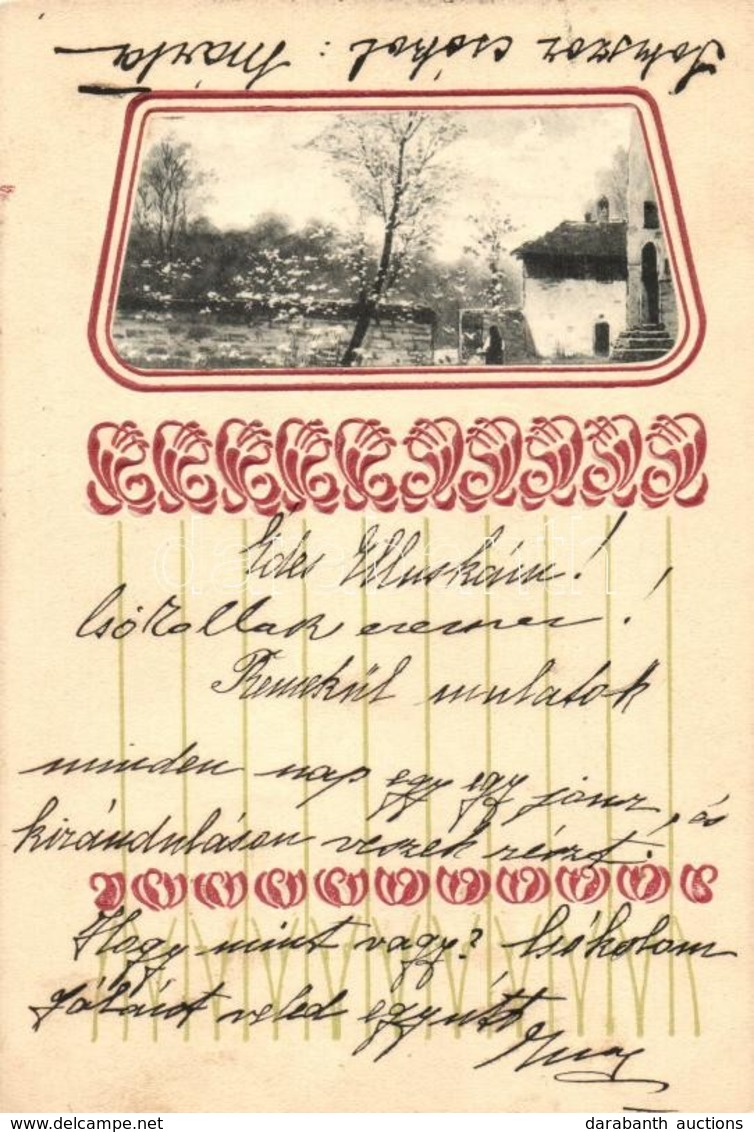 Sokszor csókol: Márta
Édes Elluskám!
Csókollak ezerszer!
Remekül mulatok
minden nap egy egy jour, és
kiránduláson veszek részt.
Hogy mint vagy? Csókolom
veled együtt
darabanth
darabanth auctions
www.delcampe.net